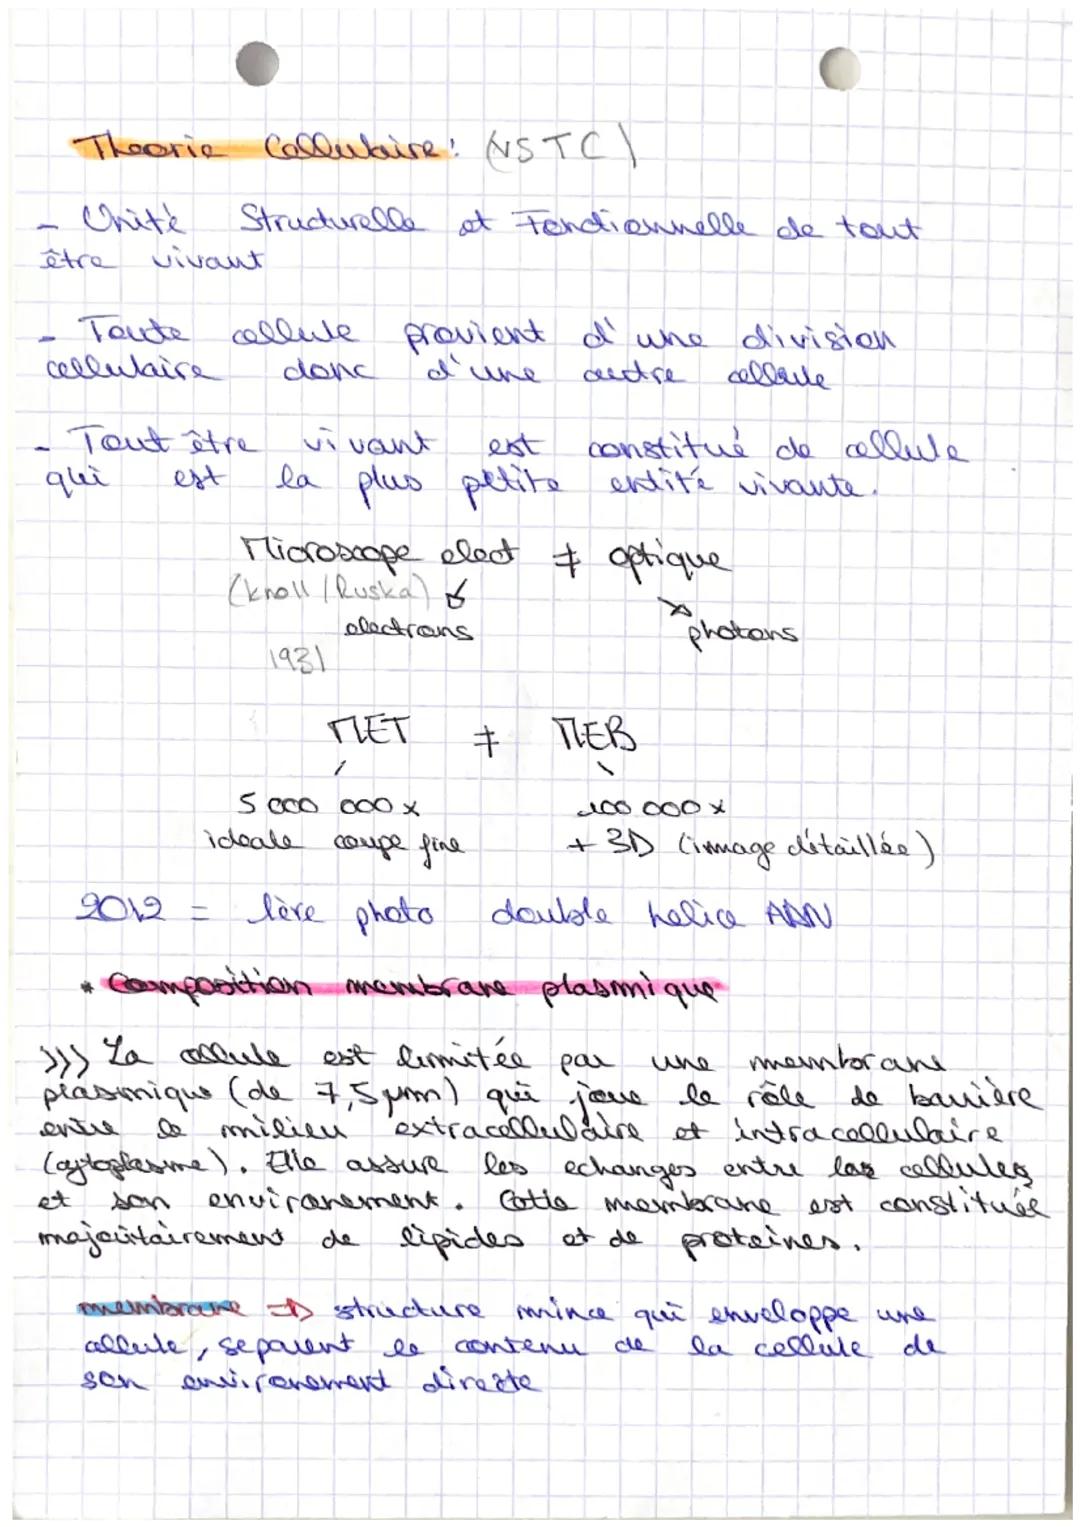 Theorie Cellulaire : (VSTC)
- Unité Structurelle et Fonctionnelle de tout
être vivant
- Toute cellule provient d'une division
cellulaire donc d'une autre cellule
- Tout être vivant est constitué de cellule
qui est la plus petite entité vivante.
Microscope elect ≠ optique
(Knoll / Ruska)
electrons photons
1931
MET ≠ MEB
5 000 000 x 100 000 x
ideale coupe fine + 3D (image détaillée)
2012 = 1ère photo double helice ADN
* Composition membrane plasmique
>>> La cellule est limitée par une membrane
plasmique (de 7,5 µm) qui joue le rôle de barrière
entre le milieu extracellulaire et intracellulaire
(cytoplasme). Elle assure les echanges entre les cellules
et son environement. Cette membrane est constituée
majoritairement de lipides et de proteines.
membrane => structure mince qui enveloppe une
cellule, separent le contenu de la cellule de
son environement directe